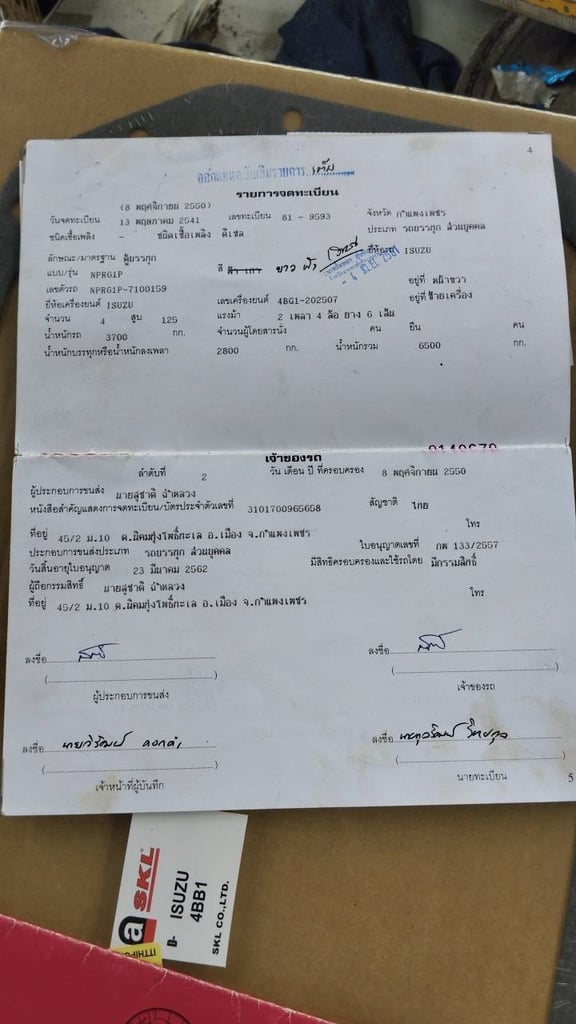 4
รายการจดทะเบียน
(8 พฤศจิกายน 2550)
วันจดทะเบียน 13 พฤษภาคม 2541 เลขทะเบียน 81 - 9593 จังหวัด กำแพงเพชร
ชนิดเชื้อเพลิง - ชนิดเชื้อเพลิง ดีเซล ประเภท รถบรรทุก ส่วนบุคคล
ลักษณะ/มาตรฐาน ตู้บรรทุก ยี่ห้อรถ ISUZU
แบบ/รุ่น NPR61P สี ฟ้า เทา ขาว ฟ้า
เลขตัวรถ NPR61P-7100159 อยู่ที่ หน้าขวา
ยี่ห้อเครื่องยนต์ ISUZU เลขเครื่องยนต์ 4BG1-202507 อยู่ที่ ซ้ายเครื่อง
จำนวน 4 สูบ 125 แรงม้า 2 เพลา 4 ล้อ ยาง 6 เส้น
น้ำหนักรถ 3700 กก. จำนวนผู้โดยสารนั่ง คน ยืน คน
น้ำหนักบรรทุกหรือน้ำหนักลงเพลา 2800 กก. น้ำหนักรวม 6500 กก.
เจ้าของรถ
ลำดับที่ 2 วัน เดือน ปี ที่ครอบครอง 8 พฤศจิกายน 2550
ผู้ประกอบการขนส่ง นายสุชาติ ฉ่ำหลวง
หนังสือสำคัญแสดงการจดทะเบียน/บัตรประจำตัวเลขที่ 3101700965658 สัญชาติ ไทย
ที่อยู่ 45/2 ม.10 ต.นิคมทุ่งโพธิ์ทะเล อ.เมือง จ.กำแพงเพชร โทร
ประกอบการขนส่งประเภท รถบรรทุก ส่วนบุคคล ใบอนุญาตเลขที่ กพ 133/2557
วันสิ้นอายุใบอนุญาต 23 มีนาคม 2562 มีสิทธิครอบครองและใช้รถโดย มีกรรมสิทธิ์
ผู้ถือกรรมสิทธิ์ นายสุชาติ ฉ่ำหลวง
ที่อยู่ 45/2 ม.10 ต.นิคมทุ่งโพธิ์ทะเล อ.เมือง จ.กำแพงเพชร โทร
ลงชื่อ ลงชื่อ
ผู้ประกอบการขนส่ง เจ้าของรถ
ลงชื่อ ลงชื่อ
เจ้าหน้าที่ผู้บันทึก นายทะเบียน
5
SKL
ISUZU
4BB1
SKL CO.,LTD.